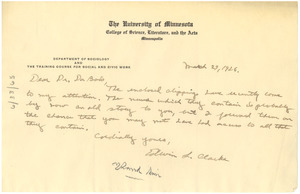 The University of Minnesota
College of Science, Literature, and the Arts
Minneapolis
DEPARTMENT OF SOCIOLOGY
AND
THE TRAINING COURSE FOR SOCIAL AND CIVIC WORK
March 29, 1926.
Dear Dr. Du Bois:
The enclosed clippings have recently come
to my attention. The news which they contain is probably
by now an old story to you, but I forward them on
the chance that you may not have had access to all that
they contain.
Cordially yours,
Edwin L. Clarke